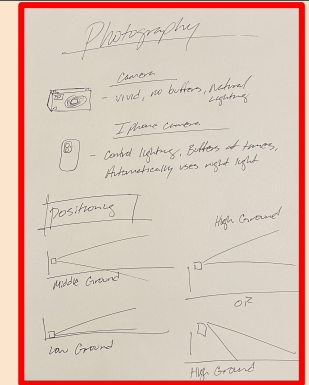 Photography
Camera
- vivid, no buffers, Natural
lighting
Iphone Camera
- Control lighting, Buffers at times,
Automatically uses night light
Positioning
High Ground
Middle Ground
or
Low Ground
High Ground